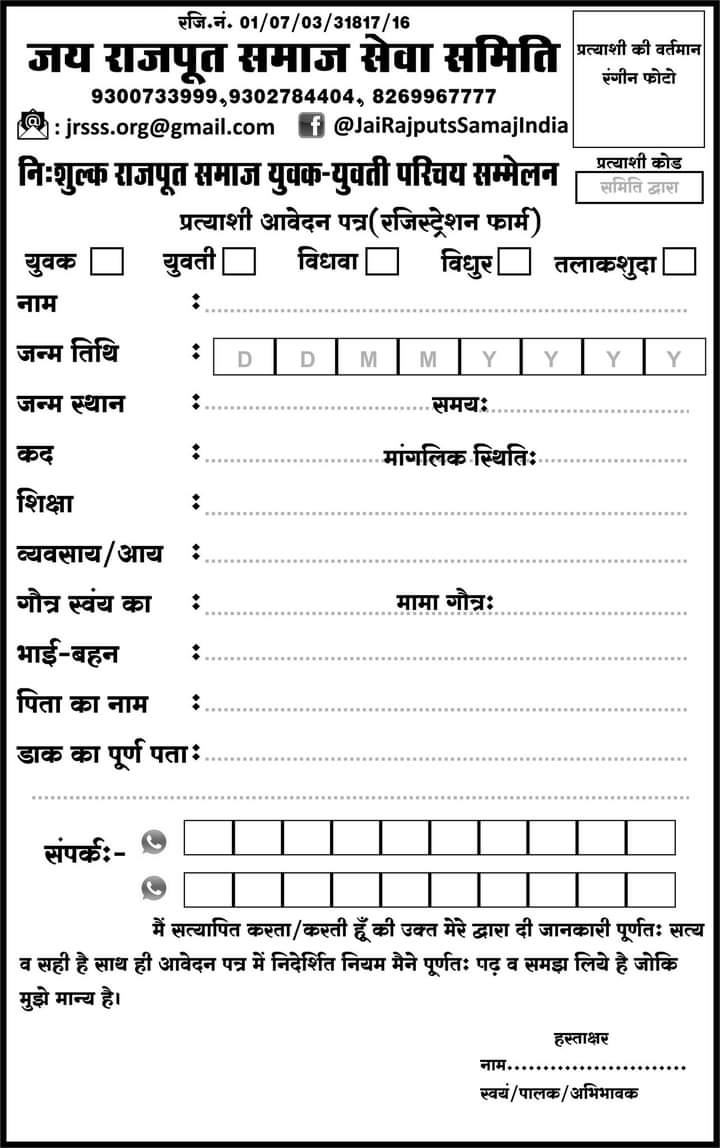 रजि.नं. 01/07/03/31817/16
जय राजपूत समाज सेवा समिति
9300733999,9302784404, 8269967777
: jrsss.org@gmail.com @JaiRajputsSamajIndia
प्रत्याशी की वर्तमान
रंगीन फोटो
प्रत्याशी कोड
समिति द्वारा
निःशुल्क राजपूत समाज युवक-युवती परिचय सम्मेलन
प्रत्याशी आवेदन पत्र(रजिस्ट्रेशन फार्म)
युवक युवती विधवा विधुर तलाकशुदा
नाम :
जन्म तिथि : D D M M Y Y Y Y
जन्म स्थान : समयः
कद : मांगलिक स्थितिः
शिक्षा :
व्यवसाय/आय :
गौत्र स्वंय का : मामा गौत्रः
भाई-बहन :
पिता का नाम :
डाक का पूर्ण पता :
संपर्कः-
मैं सत्यापित करता/करती हूँ की उक्त मेरे द्वारा दी जानकारी पूर्णतः सत्य
व सही है साथ ही आवेदन पत्र में निदेर्शित नियम मैने पूर्णतः पढ़ व समझ लिये है जोकि
मुझे मान्य है।
हस्ताक्षर
नाम........................
स्वयं/पालक/अभिभावक